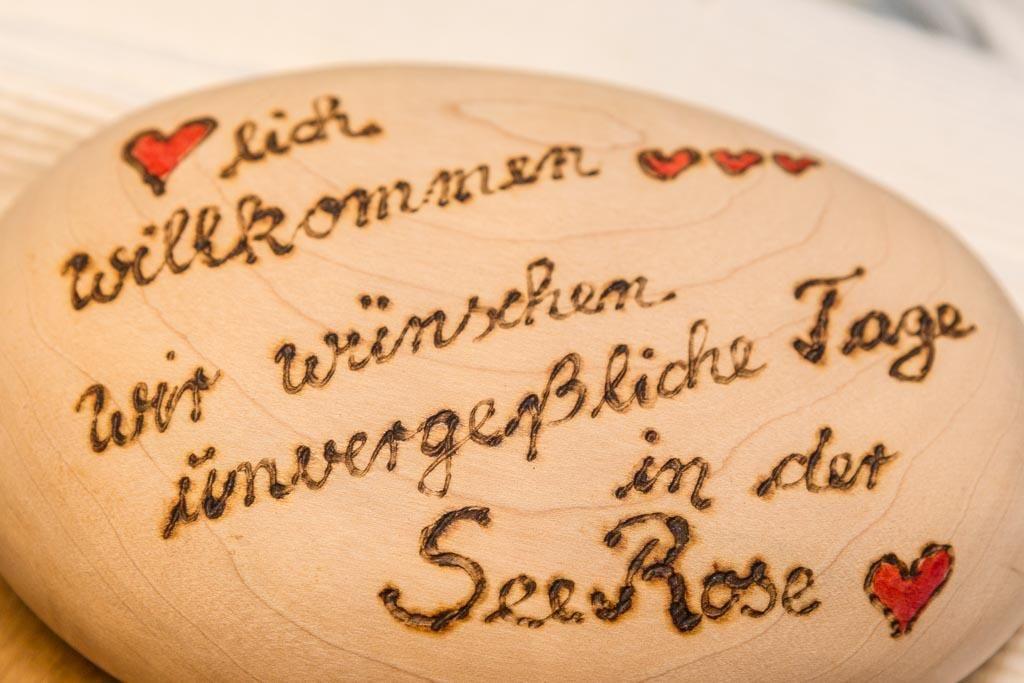 ❤lich
willkommen ❤❤❤
Wir wünschen
ünvergeßliche Tage
in der
SeeRose ❤